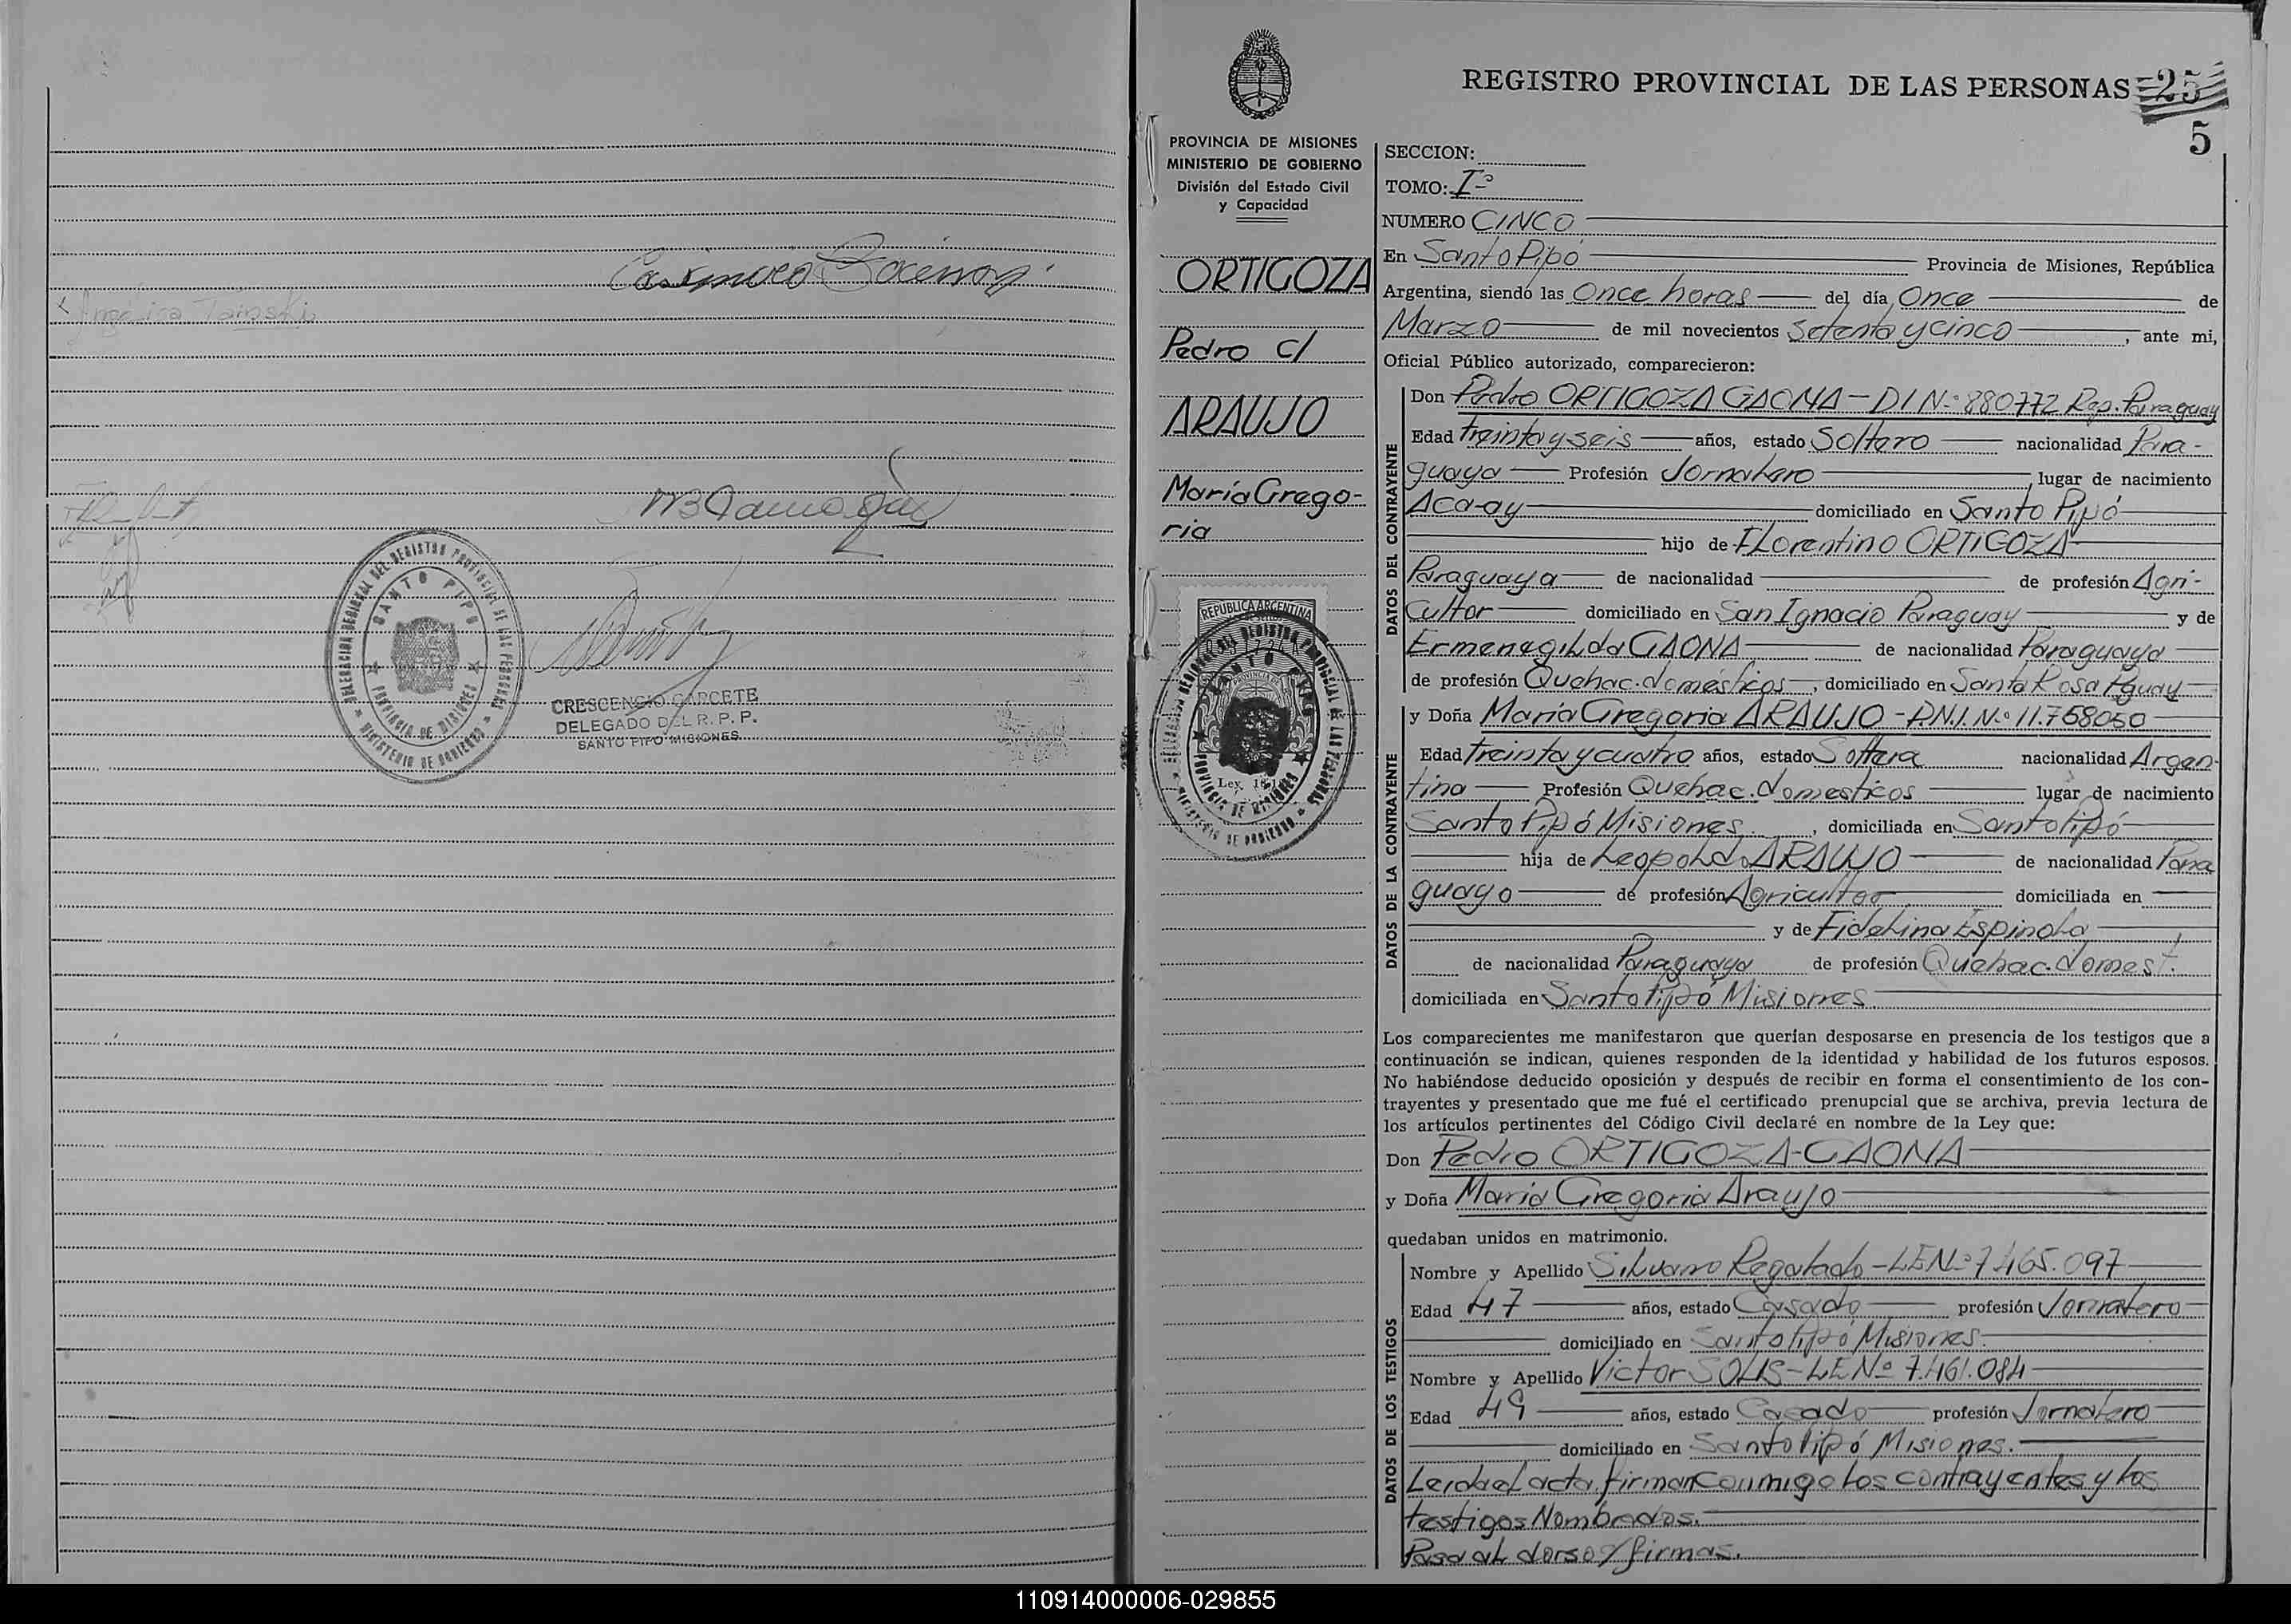 Angélica Tainski
DELEGACION REGIONAL DEL REGISTRO PROVINCIAL DE LAS PERSONAS
SANTO PIPO
PROVINCIA DE MISIONES
MINISTERIO DE GOBIERNO
CRESCENCIO GARCETE
DELEGADO DEL R. P. P.
SANTO PIPO MISIONES
PROVINCIA DE MISIONES
MINISTERIO DE GOBIERNO
División del Estado Civil
y Capacidad
ORTIGOZA
Pedro c/
ARAUJO
María Grego-
ria
REPUBLICA ARGENTINA
DELEGACION REGIONAL DEL REGISTRO PROVINCIAL DE LAS PERSONAS
SANTO PIPO
PROVINCIA DE MISIONES
MINISTERIO DE GOBIERNO
REGISTRO PROVINCIAL DE LAS PERSONAS 25
5
SECCION:
TOMO: Iº
NUMERO CINCO
En Santo Pipó Provincia de Misiones, República
Argentina, siendo las Once horas del día Once de
Marzo de mil novecientos Setenta y cinco, ante mi,
Oficial Público autorizado, comparecieron:
DATOS DEL CONTRAYENTE
Don Pedro ORTIGOZA GAONA - DI Nº 880772 Rep. Paraguay
Edad treinta y seis años, estado Soltero nacionalidad Para-
guaya Profesión Jornalero lugar de nacimiento
Aca-ay domiciliado en Santo Pipó
hijo de Florentino ORTIGOZA
Paraguaya de nacionalidad de profesión Agri-
cultor domiciliado en San Ignacio Paraguay y de
Ermenegilda GAONA de nacionalidad Paraguaya
de profesión Quehac. domésticos, domiciliado en Santa Rosa Pguay
y Doña María Gregoria ARAUJO - D.N.I. Nº 11.758050
DATOS DE LA CONTRAYENTE
Edad treinta y cuatro años, estado Soltera nacionalidad Argen-
tina Profesión Quehac. domesticos lugar de nacimiento
Santo Pipó Misiones, domiciliada en Santo Pipó
hija de Leopoldo ARAUJO de nacionalidad Para
guayo de profesión Agricultor domiciliada en
y de Fidelina Espinola
de nacionalidad Paraguaya de profesión Quehac. domest.
domiciliada en Santo Pipó Misiones
Los comparecientes me manifestaron que querían desposarse en presencia de los testigos que a
continuación se indican, quienes responden de la identidad y habilidad de los futuros esposos.
No habiéndose deducido oposición y después de recibir en forma el consentimiento de los con-
trayentes y presentado que me fué el certificado prenupcial que se archiva, previa lectura de
los artículos pertinentes del Código Civil declaré en nombre de la Ley que:
Don Pedro ORTIGOZA-GAONA
y Doña María Gregoria Araujo
quedaban unidos en matrimonio.
DATOS DE LOS TESTIGOS
Nombre y Apellido Silvano Regalado - LE Nº 7.465.097
Edad 47 años, estado Casado profesión Jornalero
domiciliado en Santo Pipó Misiones.
Nombre y Apellido Victor SOLIS - LE Nº 7.461.084
Edad 49 años, estado Casado profesión Jornalero
domiciliado en Santo Pipó Misiones.
Leida el acta firman conmigo los contrayentes y los
testigos Nombrados.
Pasa al dorso p/ firmas.
110914000006-029855